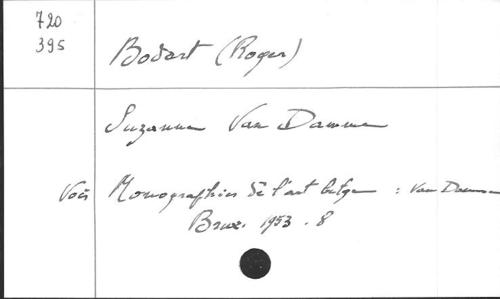 720
395
Bodart (Roger)
Suzanne Van Damme
Voir Monographies de l'art belge : Van Damme
Brux. 1953 . 8